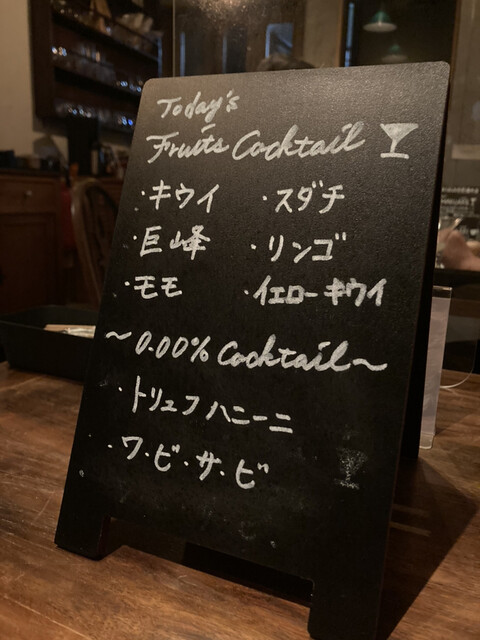 Today's
Fruits Cocktail
・キウイ ・スダチ
・巨峰 ・リンゴ
・モモ ・イエローキウイ
～0.00% Cocktail～
・トリュフハニーニ
・ワ・ビ・サ・ビ